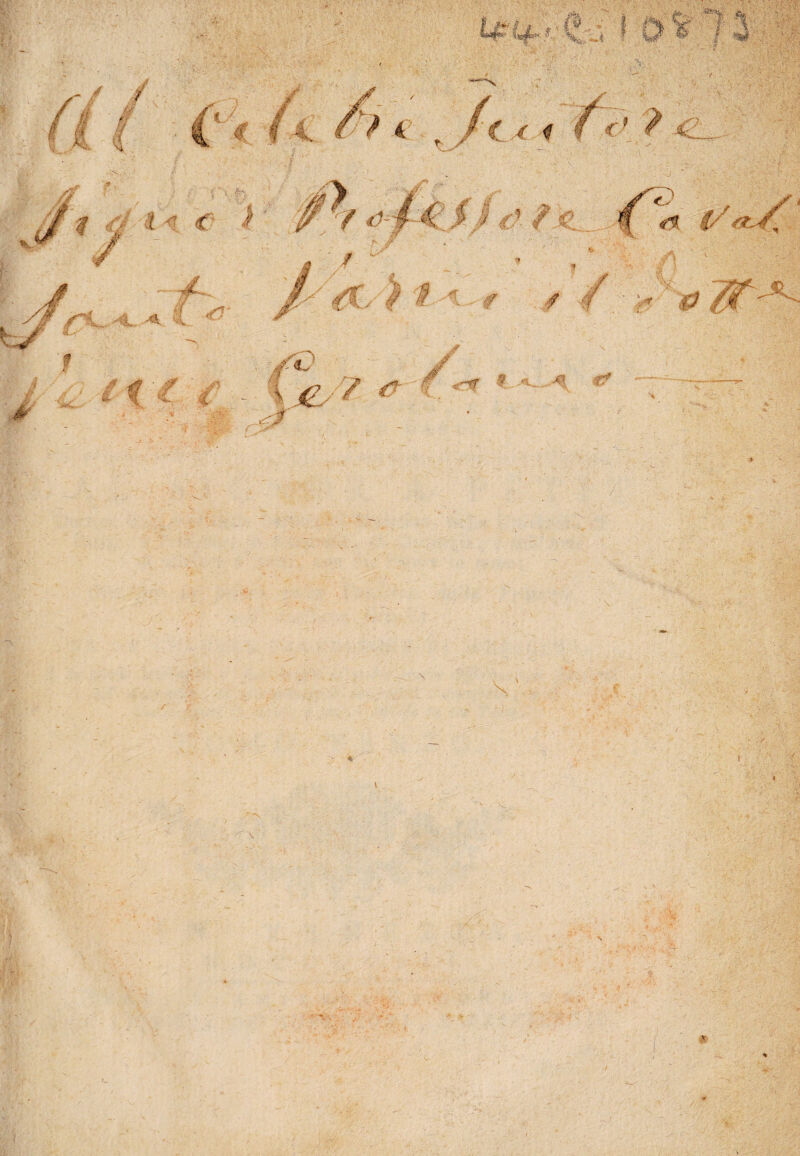 44.C.10873
Al Celebre Scultore
Signor Professore Caval.
Santo Varni il Dott.e
Gerolamo